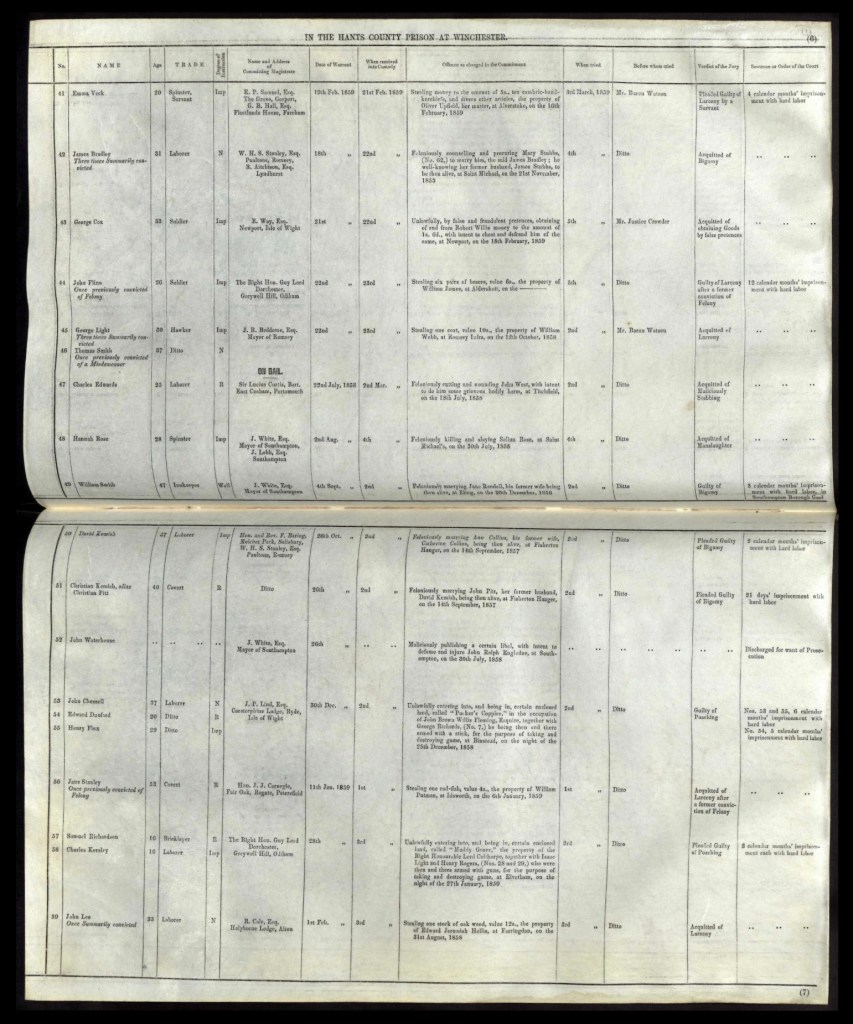 IN THE HANTS COUNTY PRISON AT WINCHESTER.
(6)
No.
NAME
Age
TRADE
Degree of
Name and Address
of
Committing Magistrate
Date of Warrant
When received
into Custody
Offence as charged in the Commitment
When tried
Before whom tried
Verdict of the Jury
Sentence or Order of the Court
41 Emma Veck 20 Spinster, Imp
Servant
The Grove, Gosport,
G. R. Hall, Esq.
Fleetlands House, Fareham
19th Feb. 1859 21st Feb. 1859
Stealing money to the amount of 3s., ten cambric-hand-
kerchiefs, and divers other articles, the property of
Oliver Upfield, her master, at Alverstoke, on the 16th
February, 1859
3rd March, 1859 Mr. Baron Watson
Pleaded Guilty of
Larceny by a
Servant
4 calendar months' imprison-
ment with hard labor
42 James Bradley 31 Laborer N
Three times Summarily con-
victed
W. H. S. Stanley, Esq.
Paultons, Romsey,
Lyndhurst
18th „ 22nd „
Feloniously counselling and procuring Mary Stubbs,
(No. 62,) to marry him, the said James Bradley; he
well-knowing her former husband, James Stubbs, to
be then alive, at Saint Michael, on the 21st November,
4th „ Ditto
Acquitted of
Bigamy
.. .. ..
43 George Cox 33 Soldier Imp
E. Way, Esq.
Newport, Isle of Wight
21st „ 22nd „
Unlawfully, by false and fraudulent pretences, obtaining
of and from Robert Willis money to the amount of
1s. 6d., with intent to cheat and defraud him of the
same, at Newport, on the 18th February, 1859
5th „ Mr. Justice Crowder
Acquitted of
obtaining Goods
by false pretences
.. .. ..
44 John Flinn 26 Soldier Imp
Once previously convicted
of Felony
The Right Hon. Guy Lord
Dorchester,
Greywell Hill, Odiham
22nd „ 23rd „
Stealing six yards of braces, value 6s., the property of
William Jaques, at Aldershott, on the ———
5th „ Ditto
Guilty of Larceny
after a former
conviction of
Felony
12 calendar months' imprison-
ment with hard labor
45 George Light 38 Hawker Imp
Three times Summarily con-
victed
46 Thomas Smith 37 Ditto N
Once previously convicted
of a Misdemeanor
J. R. Beddome, Esq.
Mayor of Romsey
22nd „ 23rd „
Stealing one coat, value 18s., the property of William
Webb, at Romsey Infra, on the 12th October, 1858
2nd „ Mr. Baron Watson
Acquitted of
Larceny
.. .. ..
ON BAIL.
47 Charles Edwards 25 Laborer R
Sir Lucius Curtis, Bart.
East Cosham, Portsmouth
22nd July, 1858 2nd Mar. „
Feloniously cutting and wounding John West, with intent
to do him some grievous bodily harm, at Titchfield,
on the 19th July, 1858
2nd „ Ditto
Acquitted of
Maliciously
Stabbing
.. .. ..
48 Hannah Rose 28 Spinster Imp
J. White, Esq.
Mayor of Southampton,
J. Lobb, Esq.
Southampton
2nd Aug. „ 4th „
Feloniously killing and slaying Selina Rose, at Saint
Michael's, on the 30th July, 1858
4th „ Ditto
Acquitted of
Manslaughter
.. .. ..
49 William Smith 47 Innkeeper Well
J. White, Esq.
Mayor of Southampton
4th Sept. „ 2nd „
Feloniously marrying Jane Rendell, his former wife being
then alive, at Eling, on the 28th December, 1858
2nd „ Ditto
Guilty of
Bigamy
2 calendar months' imprison-
ment with hard labor, in
Southampton Borough Gaol
50 David Keeich 37 Laborer Imp
Hon. and Rev. F. Baring,
Melchet Park, Salisbury,
W. H. S. Stanley, Esq.
Paultons, Romsey
26th Oct. „ 2nd „
Feloniously marrying Ann Collins, his former wife,
being then alive, at Fisherton
Hanger, on the 18th September, 1857
2nd „ Ditto
Pleaded Guilty
of Bigamy
2 calendar months' imprison-
ment with hard labor
51 Christian Keeich, alias 40 Covert R
Christian Pitt
Ditto
26th „ 2nd „
Feloniously marrying John Pitt, her former husband,
David Keeich, being then alive, at Fisherton Hanger,
on the 14th September, 1857
2nd „ Ditto
Pleaded Guilty
of Bigamy
21 days' imprisonment with
hard labor
52 John Waterhouse .. .. .. ..
J. White, Esq.
Mayor of Southampton
30th „ .. ..
Maliciously publishing a certain libel, with intent to
defame and injure John Ralph Engledue, at South-
ampton, on the 30th July, 1858
.. .. .. .. .. ..
Discharged for want of Prose-
cution
53 John Chessell 37 Laborer N
54 Edward Dunford 26 Ditto R
55 Henry Flux 23 Ditto Imp
J. P. Lind, Esq.
Lodge, Ryde,
Isle of Wight
30th Dec. „ 2nd „
Unlawfully entering into, and being in, certain enclosed
land, called "Packer's Coppice," in the occupation
of John Brown Willis Fleming, Esquire, together with
George Richards, (No. 7,) he being then and there
armed with a stick, for the purpose of taking and
destroying game, at Binstead, on the night of the
28th December, 1858
2nd „ Ditto
Guilty of
Poaching
Nos. 53 and 55, 6 calendar
months' imprisonment with
hard labor
No. 54, 5 calendar months'
imprisonment with hard labor
56 Jane Stanley 53 Covert R
Once previously convicted of
Felony
Hon. J. J. Carnegie,
Fair Oak, Rogate, Petersfield
11th Jan. 1859 1st „
Stealing one cod-fish, value 4s., the property of William
Putman, at Idsworth, on the 6th January, 1859
1st „ Ditto
Acquitted of
Larceny after
a former convic-
tion of Felony
.. .. ..
57 Samuel Richardson 16 Bricklayer R
58 Charles Kersley 16 Laborer Imp
The Right Hon. Guy Lord
Dorchester,
Greywell Hill, Odiham
28th „ 3rd „
Unlawfully entering into, and being in, certain enclosed
land, called "Muddy Grove," the property of the
Right Honourable Lord Calthorpe, together with Isaac
Light and Henry Rogers, (Nos. 28 and 29,) who were
then and there armed with guns, for the purpose of
taking and destroying game, at Elvetham, on the
night of the 27th January, 1859
3rd „ Ditto
Pleaded Guilty
of Poaching
3 calendar months' imprison-
ment each with hard labor
59 John Lee 33 Laborer N
Once Summarily convicted
R. Cole, Esq.
Holybourne Lodge, Alton
1st Feb. „ 3rd „
Stealing one stack of oak wood, value 12s., the property
of Edward Jeremiah Hollis, at Farringdon, on the
31st August, 1858
3rd „ Ditto
Acquitted of
Larceny
.. .. ..
(7)